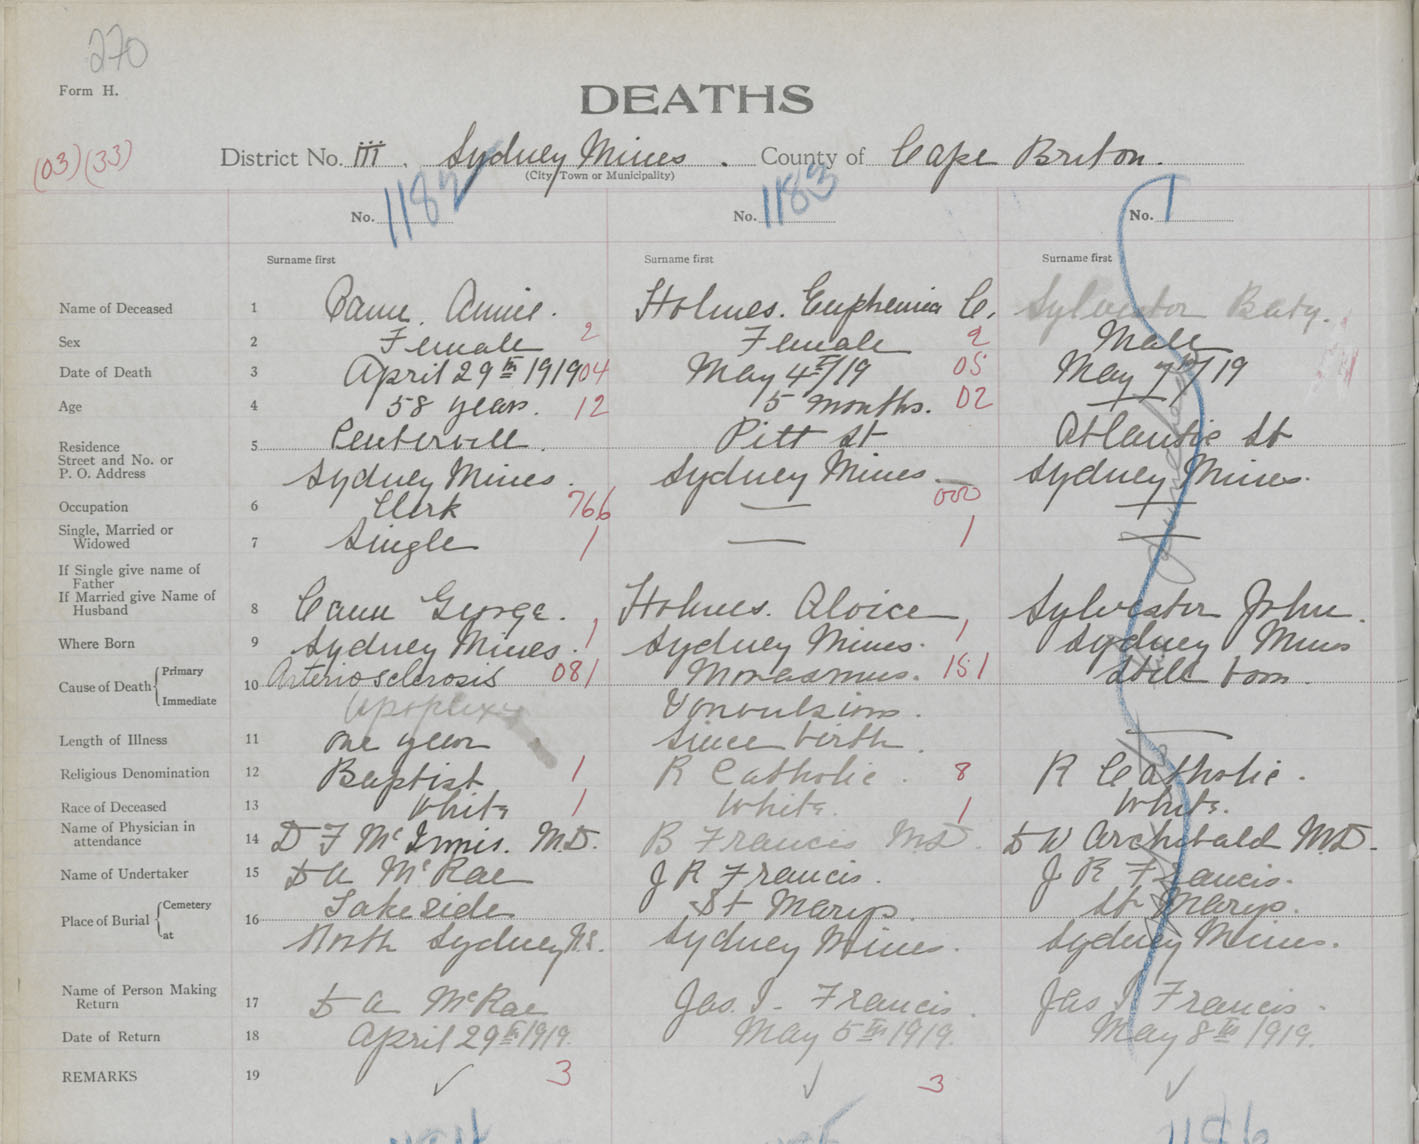 270
Form H.
DEATHS
(03) (33)
District No. III. Sydney Mines. County of Cape Briton.
(City Town or Municipality)
No. 1182 No. 1183 No. 1
Surname first Surname first Surname first
Name of Deceased 1 Cann. Annie. Holmes. Euphemia C. Sylvestor Baby.
Sex 2 Female 2 Female 2 Male
Date of Death 3 April 29th 1919 04 May 4th/19 05 May 7th/19
Age 4 58 years. 12 5 months. 02 —
Residence 5 Centervill. Pitt St Atlantic St
Street and No. or
P. O. Address Sydney Mines. Sydney Mines. Sydney Mines.
Occupation 6 Clerk 766 — 000 —
Single, Married or
Widowed 7 Single 1 — 1 —
If Single give name of
Father
If Married give Name of
Husband 8 Cann George. Holmes. Aloice Sylvestor John.
Where Born 9 Sydney Mines. 1 Sydney Mines. 1 Sydney Mines
Cause of Death Primary 10 Arteriosclerosis 081 Morasmus. 151 Still born.
Immediate Apoplexy Convulsions.
Length of Illness 11 one year since birth. —
Religious Denomination 12 Baptist 1 R Catholic. 8 R Catholic.
Race of Deceased 13 White 1 White. 1 White.
Name of Physician in
attendance 14 D F McInnis. M.D. B Francis M.D. D W Archibald M.D.
Name of Undertaker 15 D A McRae J R Francis. J R Francis.
Place of Burial Cemetery 16 Lakeside St Marys. St Marys.
at North Sydney N.S. Sydney Mines. Sydney Mines.
Name of Person Making
Return 17 D A McRae Jas. J. Francis. Jas J Francis.
Date of Return 18 April 29th 1919. May 5th 1919. May 8th 1919.
REMARKS 19 ✓ 3 ✓ 3 ✓